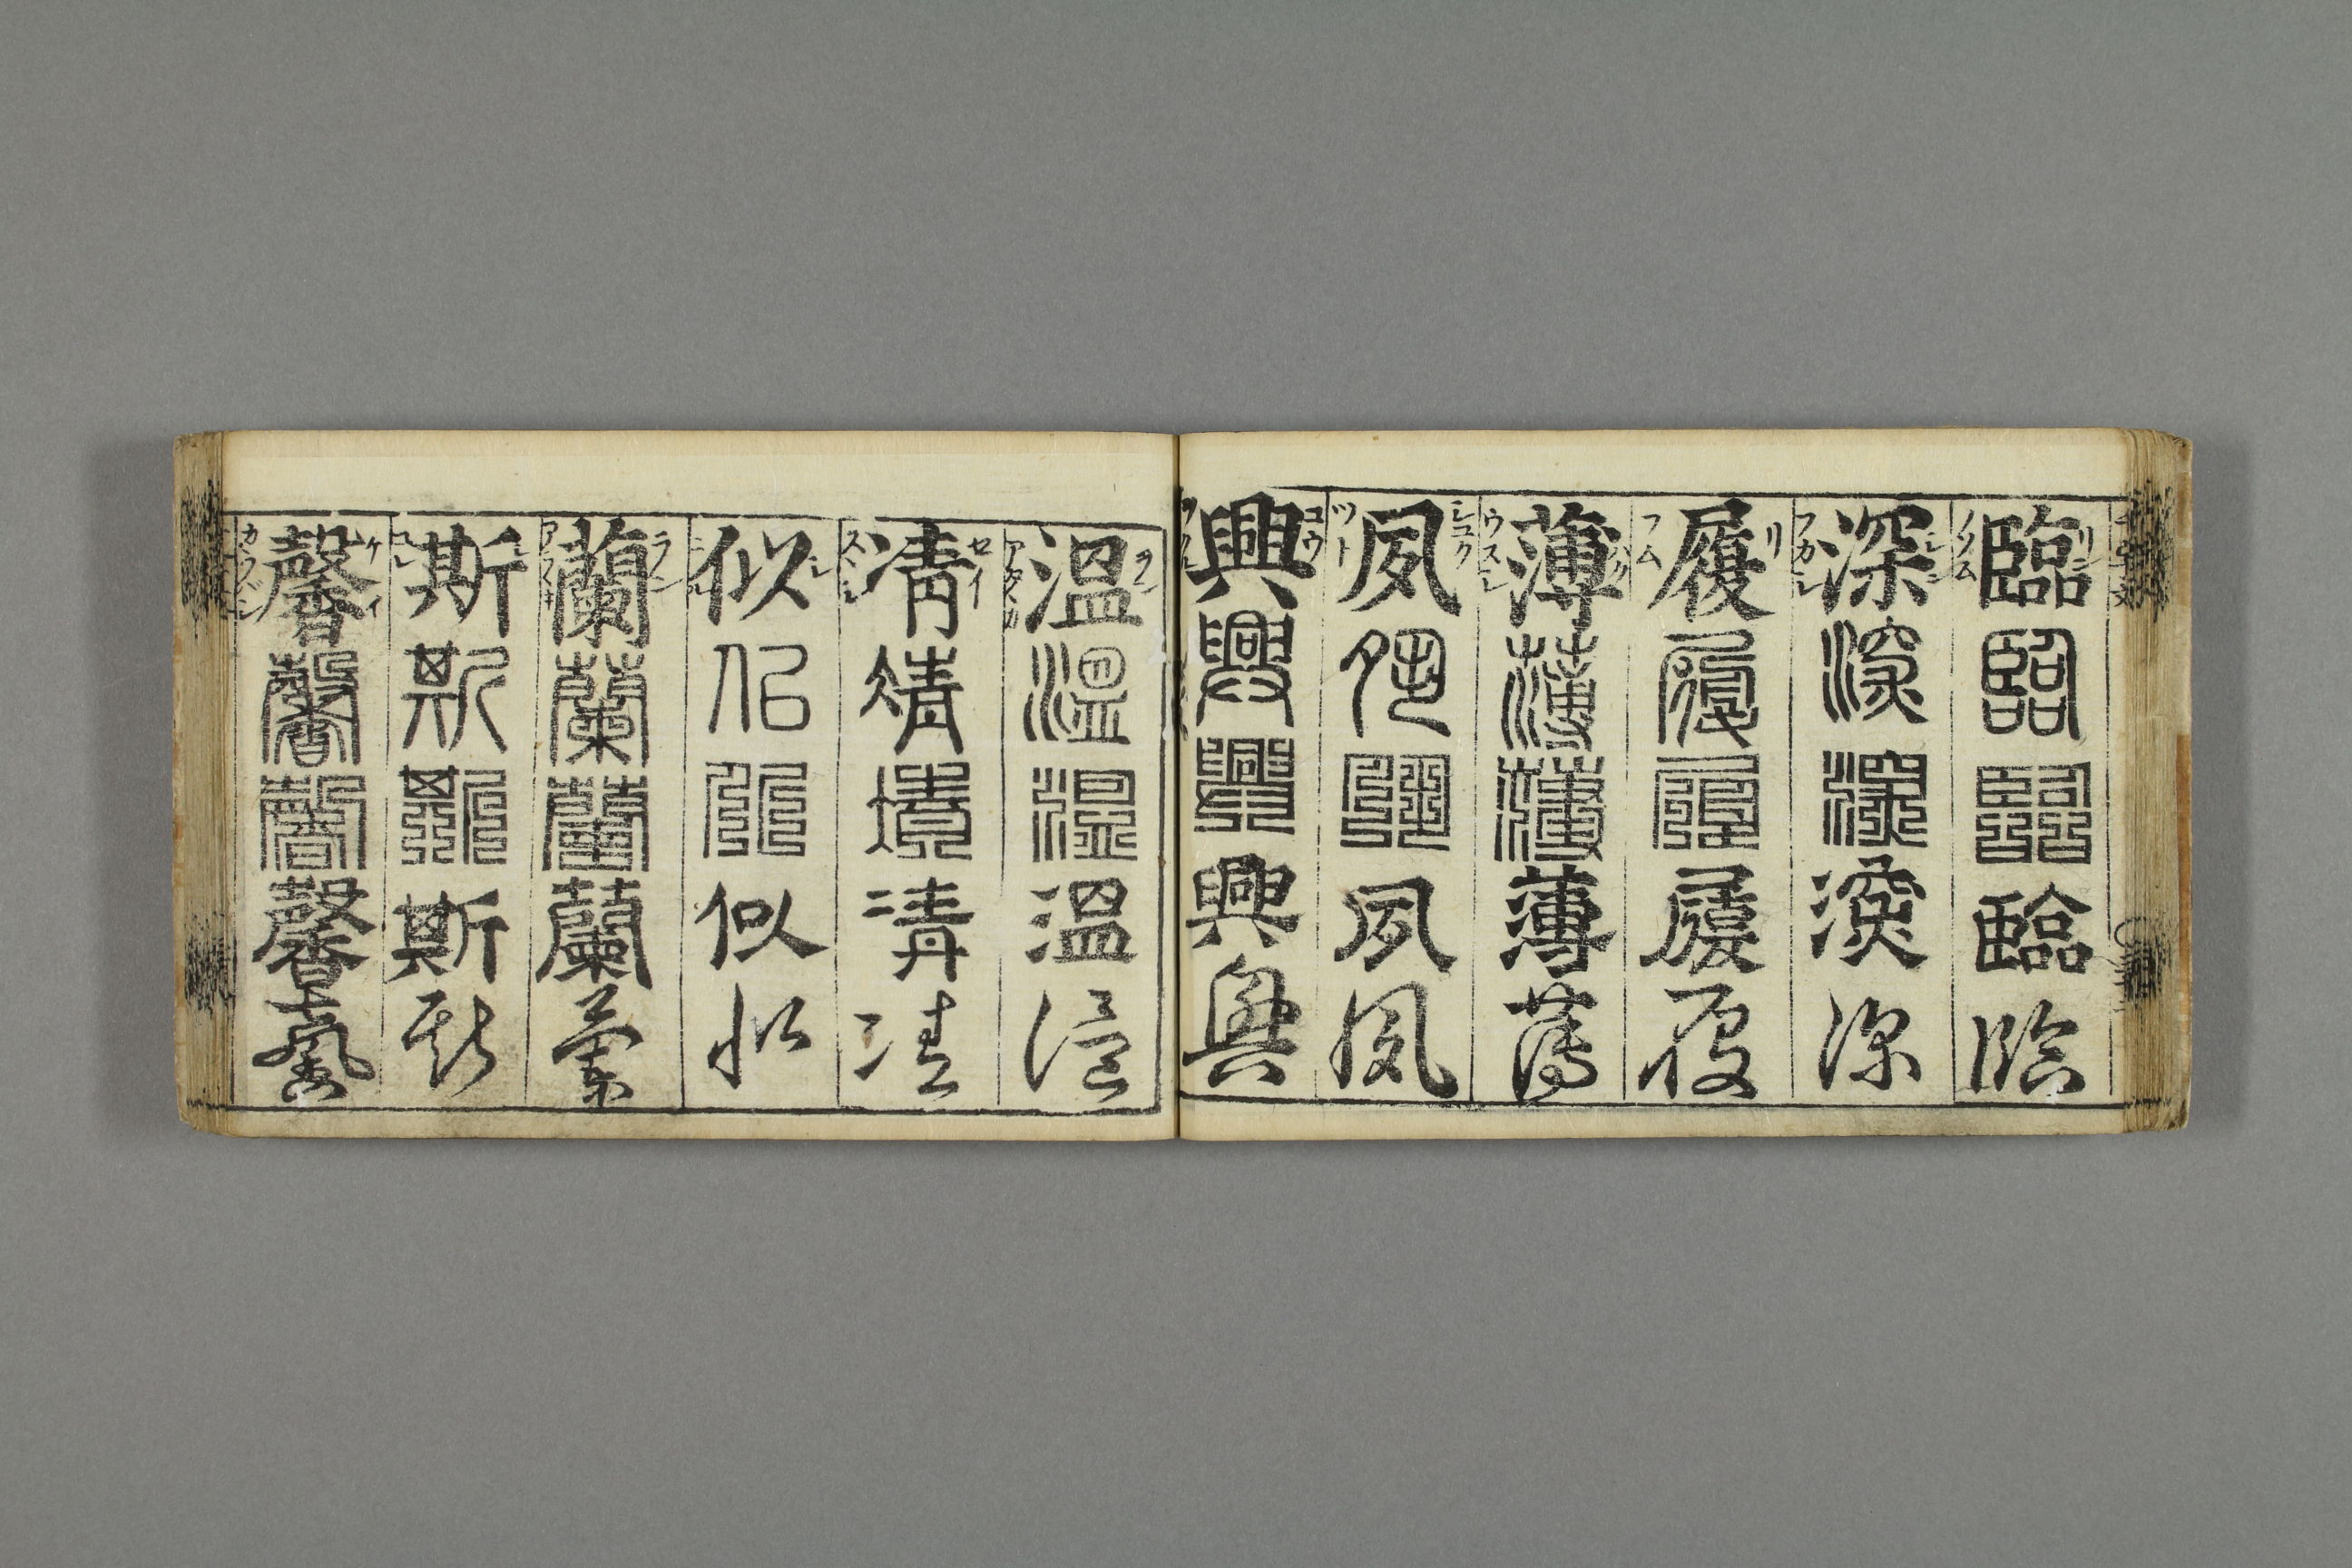 臨臨臨臨臨
リン
ノソム
深深深深深
シン
フカシ
履履履履履
リ
フム
薄薄薄薄薄
ハク
ウスシ
夙夙夙夙夙
シユク
ツト
興興興興興
コウ
温温温温温
ヲン
アタヽカ
凊凊凊凊凊
セイ
スヽシ
似似似似似
シ
ニル
蘭蘭蘭蘭蘭
ラン
斯斯斯斯斯
シ
コレ
馨馨馨馨馨
ケイ
カウバシ